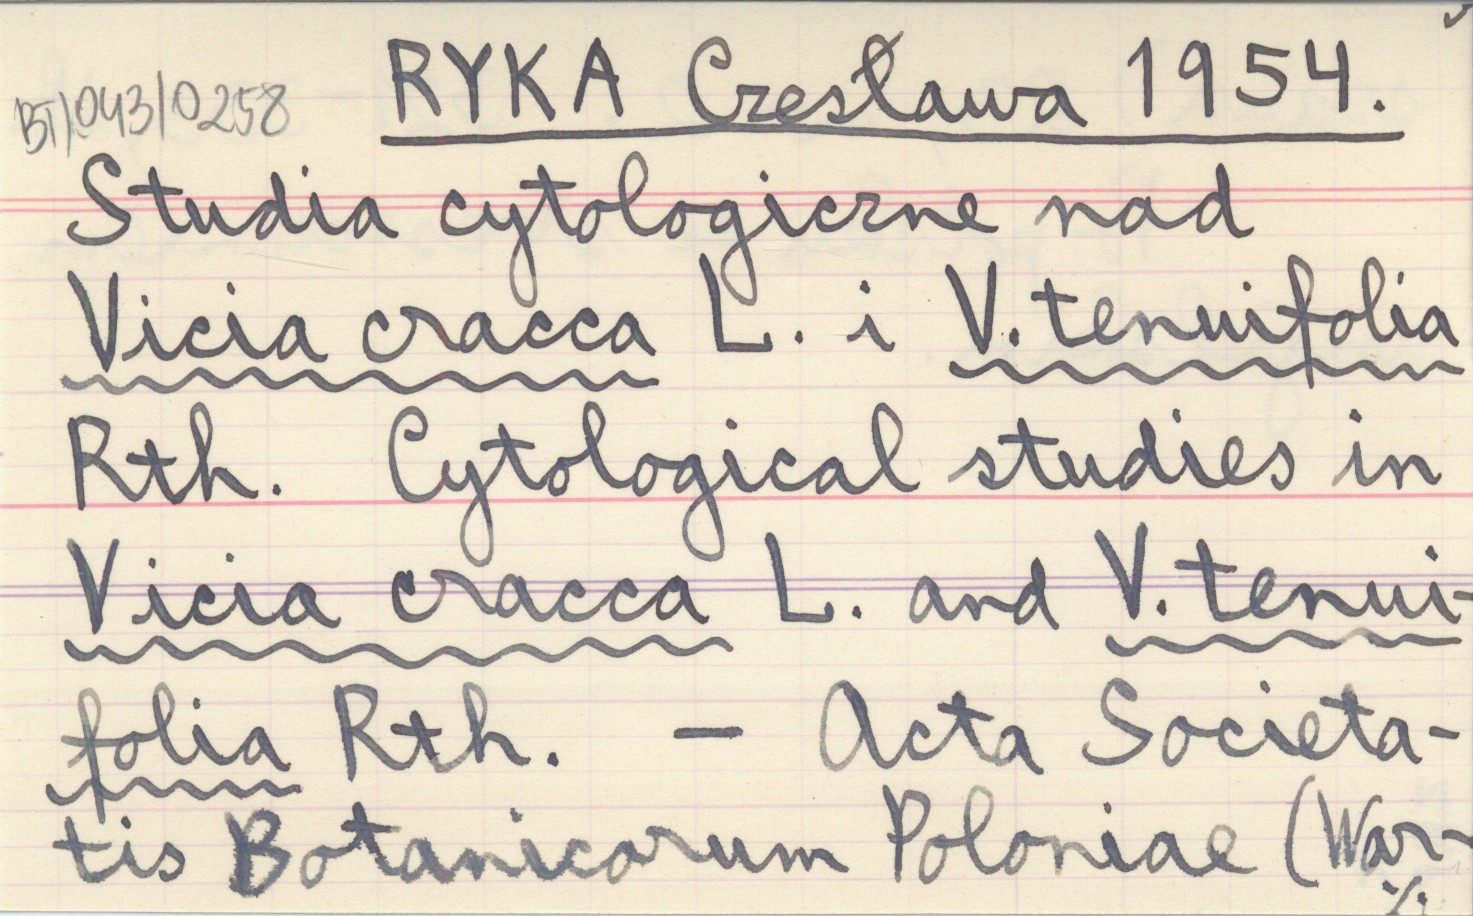 RYKA Czesława 1954.
BT/043/0258
Studia cytologiczne nad
Vicia cracca L. i V. tenuifolia
Rth. Cytological studies in
Vicia cracca L. and V. tenui-
folia Rth. – Acta Societa-
tis Botanicorum Poloniae (War-
./.